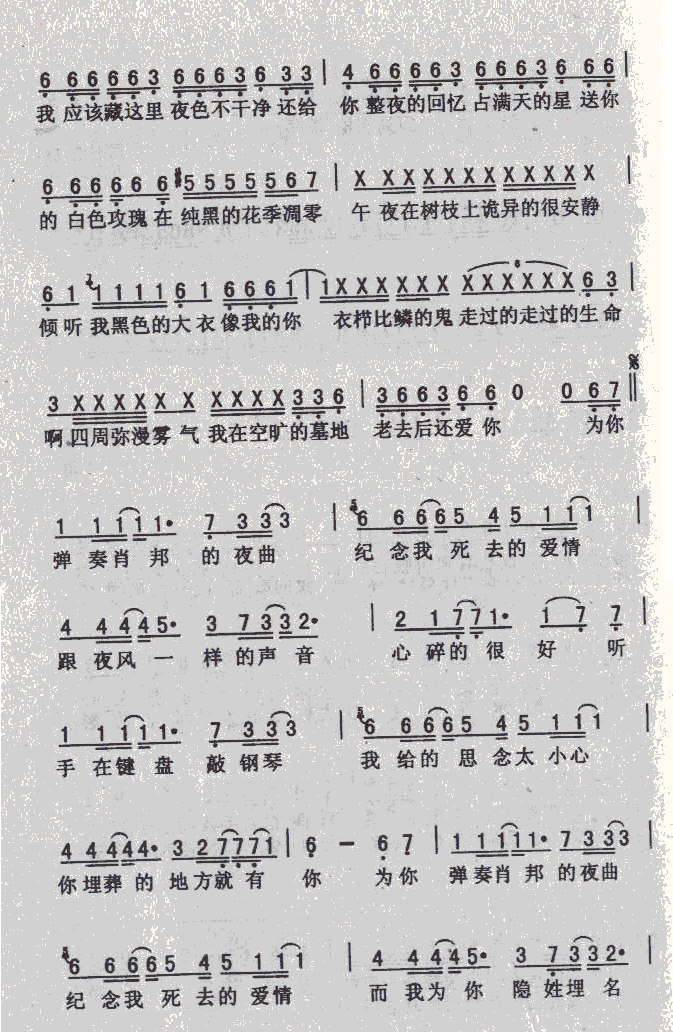 6 6 6 6 6 6 3 6 6 6 3 6 3 3 | 4 6 6 6 6 3 6 6 6 3 6 6 6 |
我 应该藏这里 夜色不干净 还给 你 整夜的回忆 占满天的星 送你
6 6 6 6 6 6 #5 5 5 5 5 6 7 | X X X X X X X X X X X X |
的 白色玫瑰在 纯黑的花季凋零 午 夜在树枝上诡异的很安静
6 1 1 1 1 1 6 1 6 6 6 1 | 1 X X X X X X X X X X X 6 3 |
倾听 我黑色的大衣像我的你 衣栉比鳞的鬼 走过的走过的生命
3 X X X X X X X X X X 3 3 6 | 3 6 6 3 6 6 0 0 6 7 ||
啊四周弥漫雾 气 我在空旷的墓地 老去后还爱你 为你
1 1 1 1 1 1· 7 3 3 3 3 | 6 6 6 6 6 5 4 5 1 1 1 1 |
弹 奏肖 邦 的 夜曲 纪 念我 死 去的 爱情
4 4 4 4 4 5· 3 7 3 3 3 2· | 2 1 7 7 1· 1 7 7 |
跟 夜风 一 样的声 音 心 碎的 很 好 听
1 1 1 1 1 1· 7 3 3 3 3 | 6 6 6 6 6 5 4 5 1 1 1 1 |
手 在键 盘 敲 钢琴 我 给的 思 念太 小心
4 4 4 4 4 4· 3 2 7 7 7 1 | 6 – 6 7 | 1 1 1 1 1 1· 7 3 3 3 3 |
你 埋葬 的 地方就 有 你 为你 弹奏肖 邦 的夜曲
6 6 6 6 6 5 4 5 1 1 1 1 | 4 4 4 4 4 5· 3 7 3 3 2· |
纪 念我 死 去的 爱情 而 我为 你 隐 姓埋 名